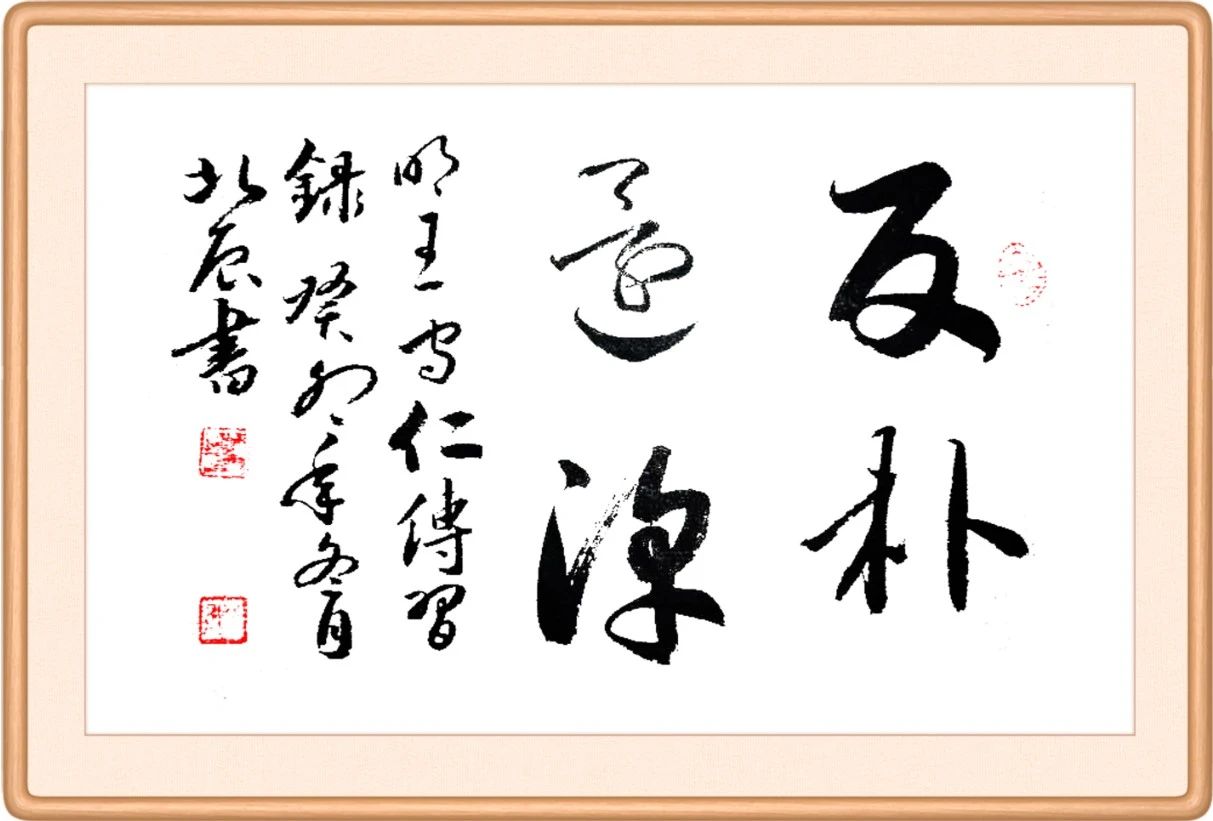 反朴
還淳
明王守仁傳習
録癸卯年冬月
北辰書